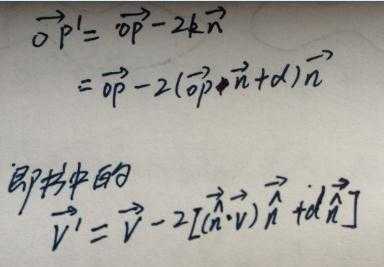 $\overrightarrow{op'} = \overrightarrow{op} - 2k\vec{n}$
$= \overrightarrow{op} - 2(\overrightarrow{op} \cdot \vec{n} + d)\vec{n}$
即书中的
$\vec{v}' = \vec{v} - 2[(\vec{\hat{n}} \cdot \vec{v})\vec{\hat{n}} + d\vec{\hat{n}}]$